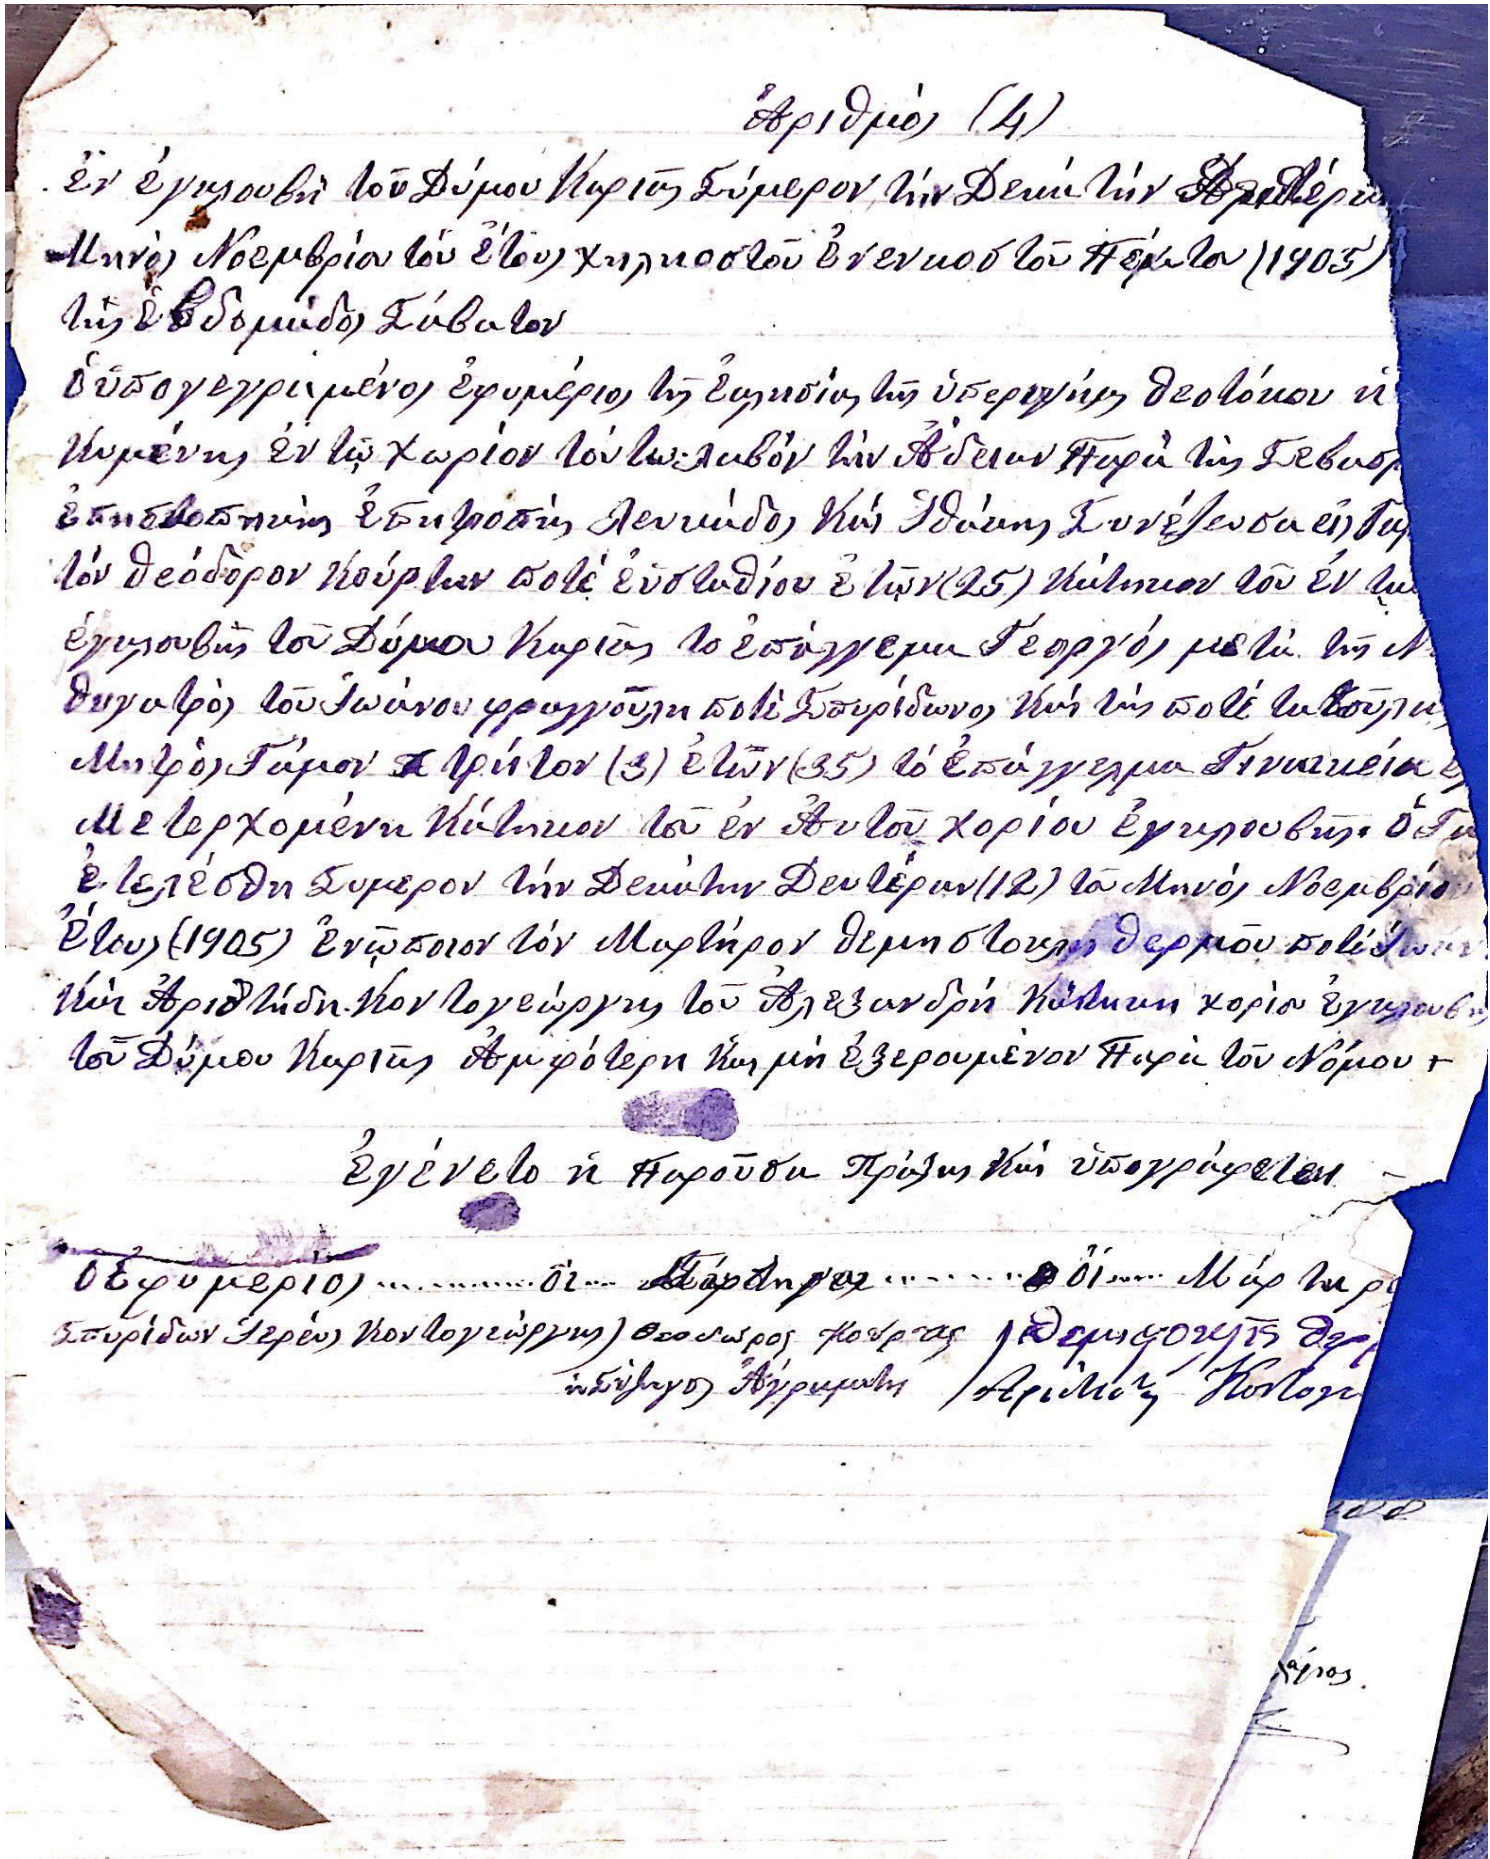 Ἀριθμός (4)
Ἐν ἐγκλουβῆ τοῦ Δύμου Καριᾶς Σύμερον τήν Δεκά την
Μηνός Νοεμβρίου τοῦ ἔτους χιληοστοῦ ἐνενκοστοῦ Πέμπτου (1905)
τῆς ἑβδομάδος Σάβατον
ὁ ὑπογεγραμένος ἐφυμέριος τῆς ἐκλησίας τῆς ὑπεραγήας θεοτόκου ἡ
Κυμένης ἐν τῷ χωρίον τούτω λαβόν τήν Ἄδειαν Παρά τῆς Σεβασμ
ἐπησκοπηκῆς ἐπητροπῆς Λευκάδος Καί Ἰθάκης Συνέζευσα εἰς Γαμ
τόν θεόδορον Κούρταν ποτέ εὐσταθίου ἐτῶν (25) Κάτηκον τοῦ ἐν τω
ἐγκλουβῆς τοῦ Δύμου Καριᾶς το ἐπάγγεμα Γεοργός μετά τῆς
θυγατρός τοῦ Ἰωάνου φραγγούλη ποτέ Σπυρίδωνος Καί τῆς ποτέ
Μητρός Γάμον τρήτον (3) ἐτῶν (35) τό ἐπάγγελμα Γινεκεία
Μετερχομένη Κάτηκον τοῦ ἐν Αὐτοῦ χορίου ἐγκλουβῆς. ὁ Γα
ἐτελέσθη Συμερον τήν Δεκάτην Δευτέραν (12) τοῦ Μηνός Νοεμβρίου
ἔτους (1905) ἐνῶποιον τόν Μαρτήρον θεμηστοκλη θερμοῦ ποτέ Ἰωαν
Καί Ἀριστήδη Κοντογεώργης τοῦ Ἀλεξανδρή Κάτηκη χορίου ἐγκλουβῆς
τοῦ Δύμου Καριᾶς Ἀμφότερη Καί μή ἐξερουμένον Παρά τοῦ Νόμου +
ἐγένετο ἡ Παροῦσα Πράξης Καί ὑπογράφεται
ὁ ἐφυμεριος ............ ὁι ... ........ ὁι .... Μάρτηρε
Σπυρίδων Ἱερέυς Κοντογεώργης) Θεοδωρος Κουρτας / Θεμιστοκλῆς Θερ
ἡ Σύζηγος Ἀγραμάτη / Αριστίδης Κοντογε